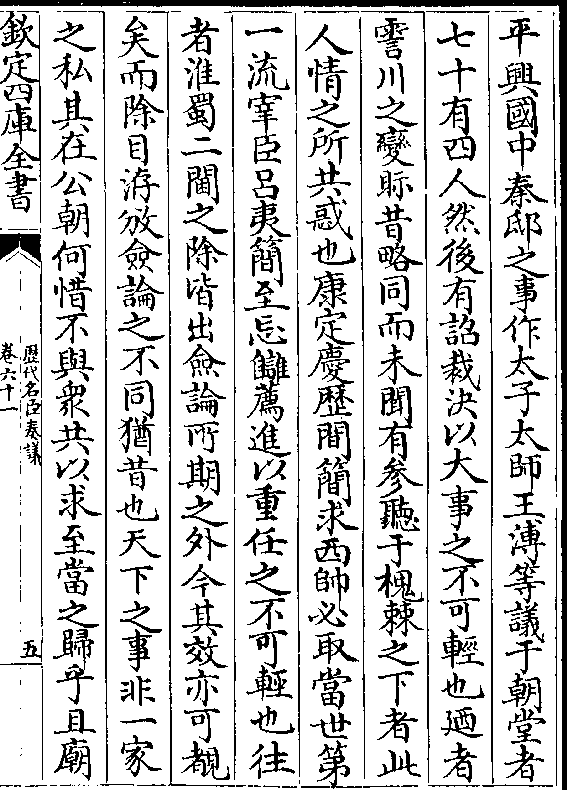 平興國中秦邸之事作太子太師王溥等議于朝堂者
七十有四人然後有詔裁決以大事之不可輕也廼者
霅川之變眎昔略同而未聞有參聽于槐棘之下者此
人情之所共惑也康定慶歷間簡求西帥必取當世第
一流宰臣吕夷簡至忘讎薦進以重任之不可輕也往
者淮蜀二閫之除皆出僉論所期之外今其效亦可覩
矣而除目洊放僉論之不同猶昔也天下之事非一家
之私其在公朝何惜不與衆共以求至當之歸乎且廟
欽定四庫全書
歷代名臣奏議
卷六十一
五